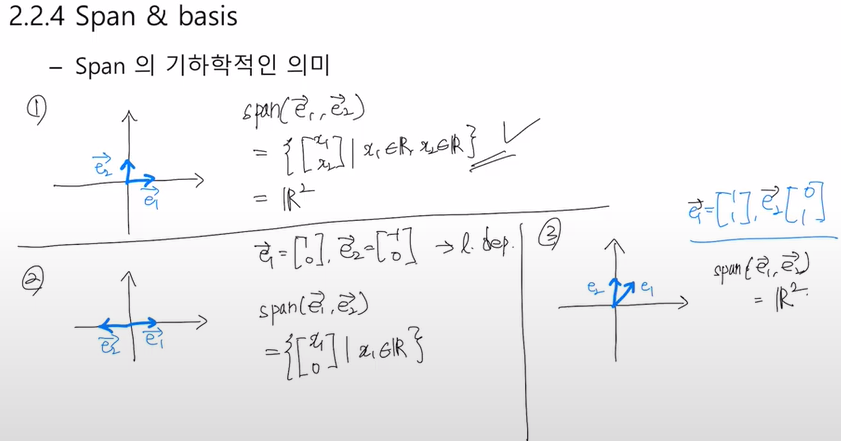 2.2.4 Span & basis
– Span 의 기하학적인 의미
①
e⃗₂
e⃗₁
span(e⃗₁, e⃗₂)
= { [x₁ x₂] | x₁∈ℝ, x₂∈ℝ }
= ℝ²
②
e⃗₂
e⃗₁
e⃗₁ = [1 0], e⃗₂ = [-1 0] → l. dep.
span(e⃗₁, e⃗₂)
= { [x₁ 0] | x₁∈ℝ }
③
e₂
e₁
e⃗₁ = [1 1], e⃗₂ [0 1]
span(e⃗₁, e⃗₂)
= ℝ².